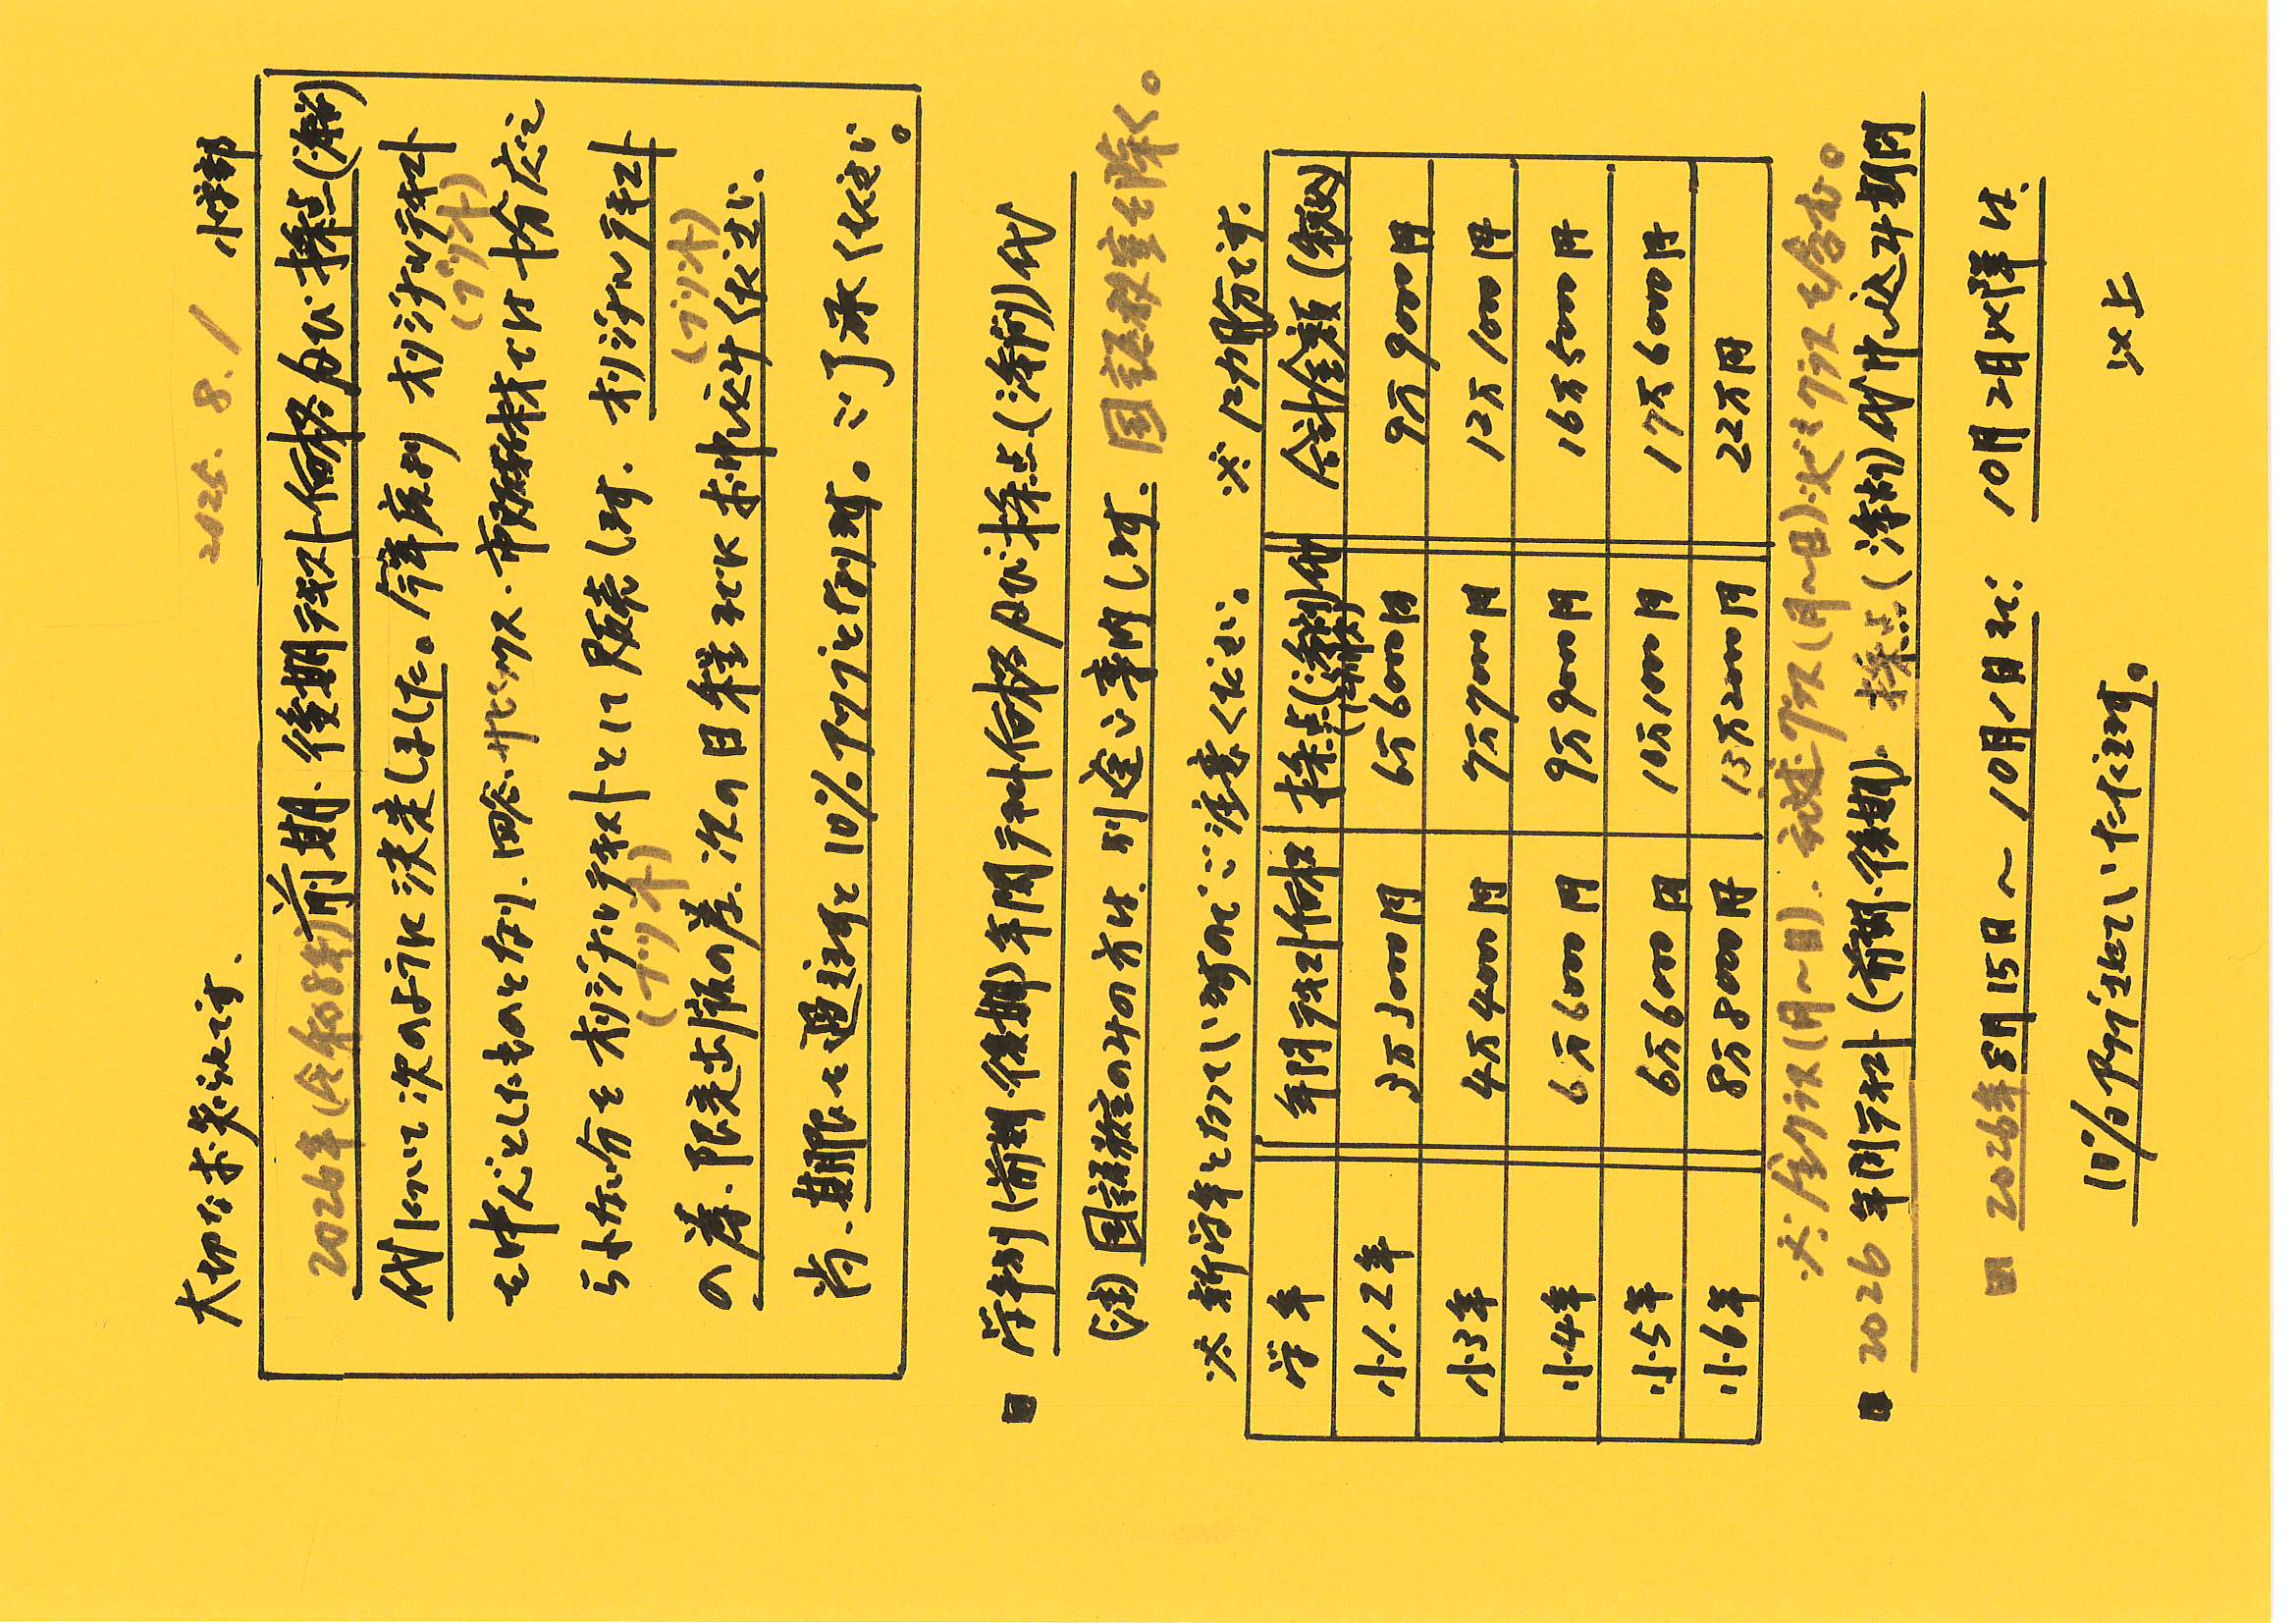 大切なお知らせです、
2025.8.1 小学部
2026年(令和8年)前期・後期テキスト価格及び採点(添削)
代について次のように決定しました。今年度よりオリジナルテキスト
(プリント)
を中心としたものとなり、四谷・サピックス・市販教材では十分応じ
られない分をオリジナルテキストとして販売します、オリジナルテキスト
(プリント) (プリント)
の為、限定出版の為、次の日程迄にお申し込みください、
尚、期限を過ぎますと10%アップとなります。ご了承ください。
■ 学年別(前期・後期)年間テキスト価格及び採点(添削)代
(注)国語教室のみの方は、別途ご案内します、国語教室を除く。
※新学年となっていますのでご注意ください。 ※12カ月分です、
学年 年間テキスト価格 採点(添削)代 合計金額(税込)
小1.2年 3万3000円 6万6000円 9万9000円
小3年 4万4000円 7万7000円 12万1000円
小4年 6万6000円 9万9000円 16万5000円
小5年 6万6000円 10万1000円 17万6000円
小6年 8万8000円 13万2000円 22万円
※全クラス(月〜日)、記述クラス(月〜日)・火ミクラスを含む。
■ 2026年間テキスト(前期・後期)、採点(添削)代申し込み期間
■ 2026年8月15日〜10月1日迄: 10月2日以降は、
10%アップさせていただきます。
以上